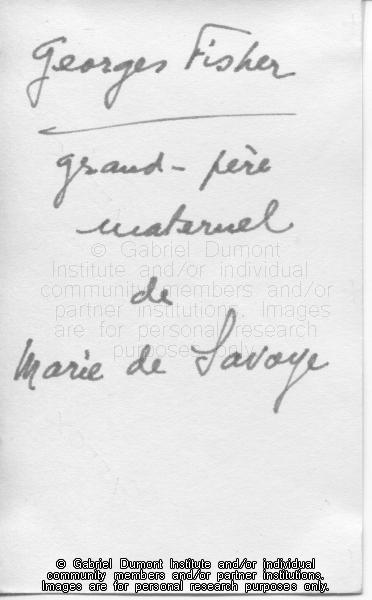 Georges Fisher
grand-père
maternel
© Gabriel Dumont
Institute and/or individual
community members and/or
de
partner institutions. Images
are for personal research
purposes only.
Marie de Savoye
© Gabriel Dumont Institute and/or individual
community members and/or partner institutions.
Images are for personal research purposes only.